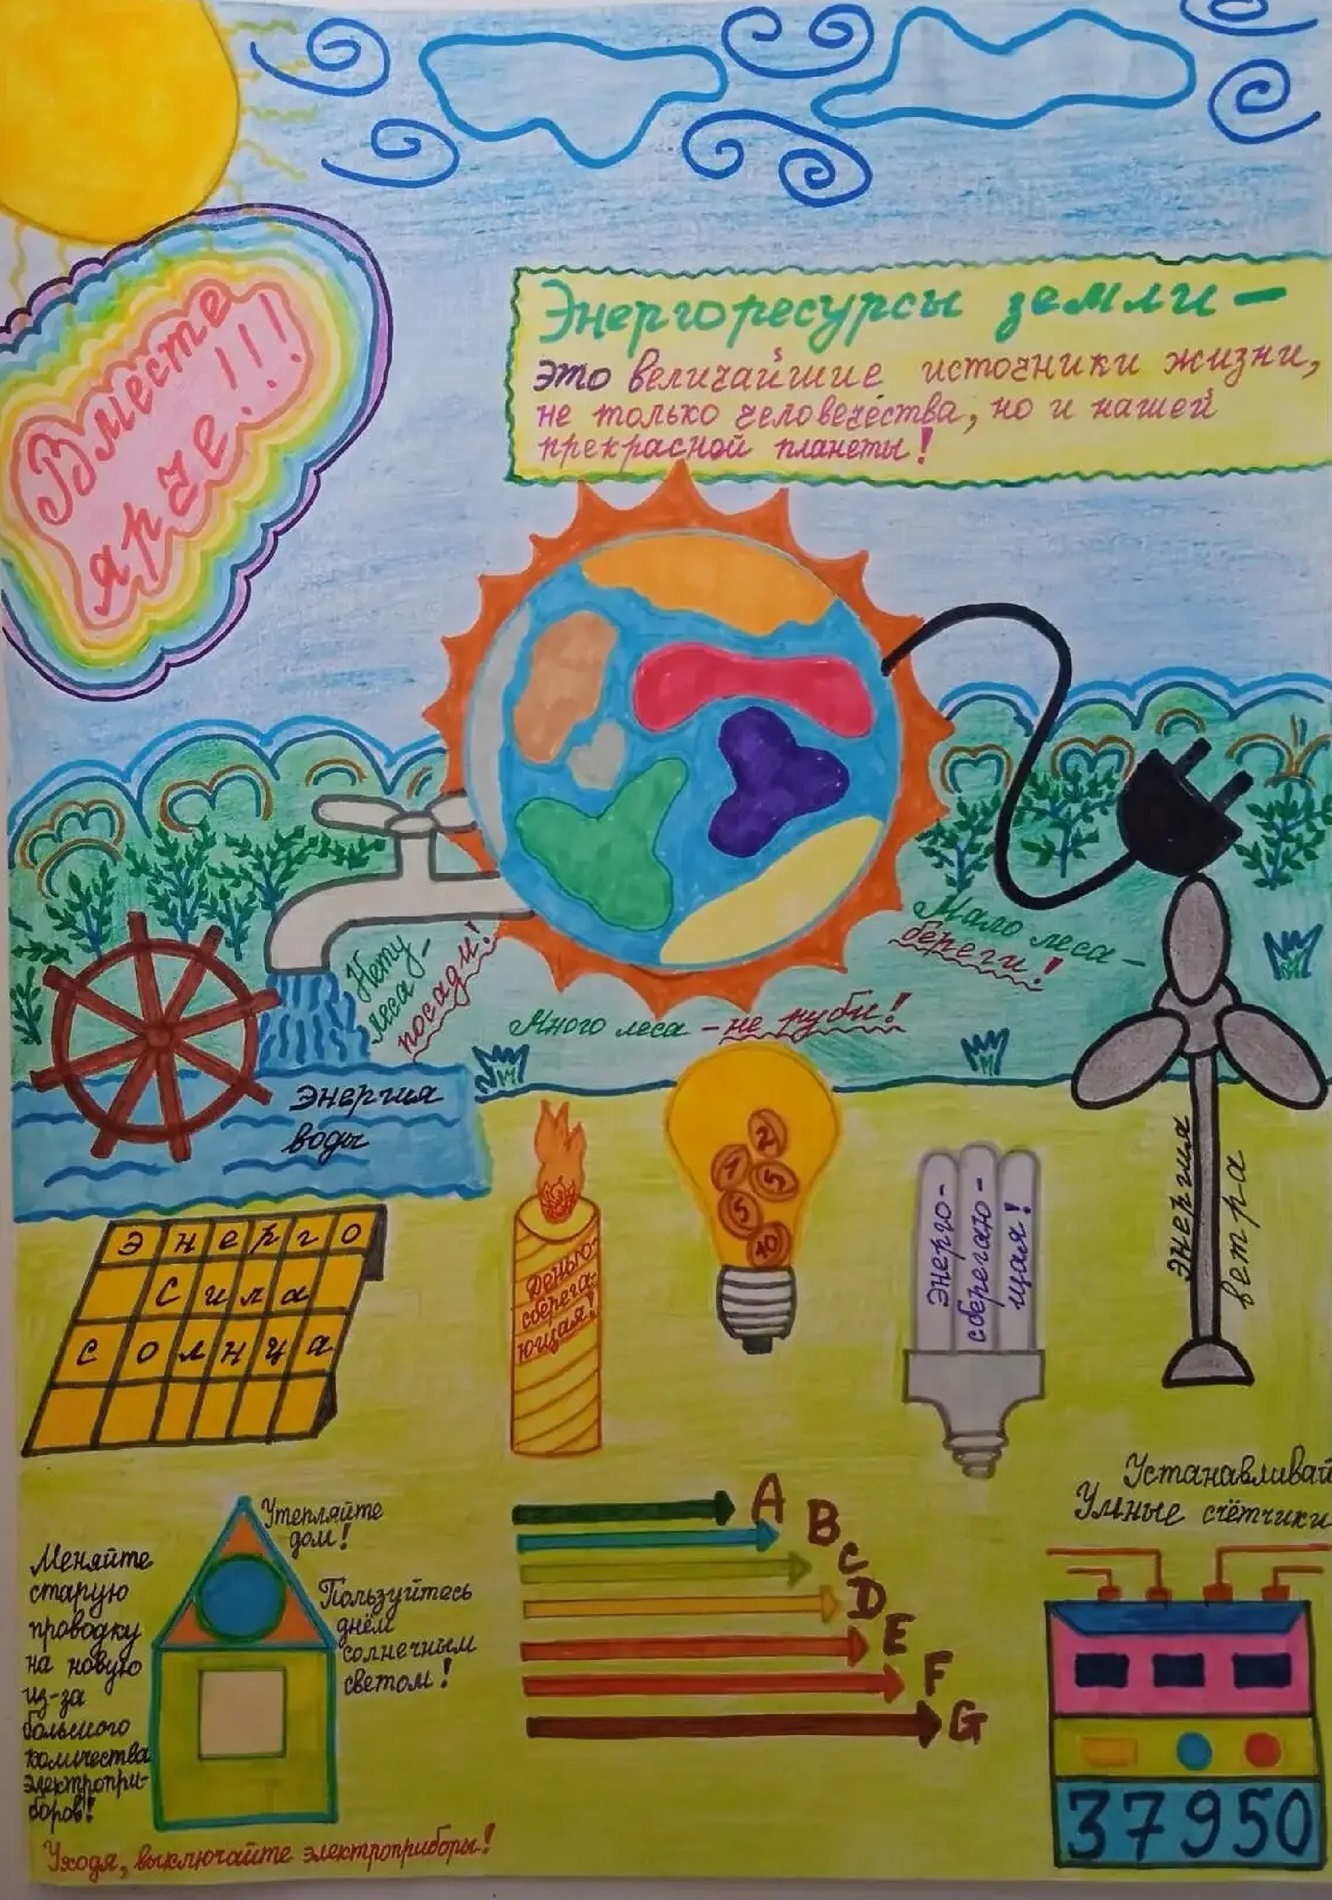 Вместе
ярче!!!
Энергоресурсы земли-
это величайшие источники жизни,
не только человечества, но и нашей
прекрасной планеты!
Нету
леса-
посади!
Много леса - не руби!
Мало леса-
береги!
энергия
воды
Энерго
Сила
солнца
Деньго-
сберега-
ющая!
2
1
5
5
10
Энерго-
сберегаю-
щая!
энергия
ветра
Утепляйте
дом!
Меняйте
старую
проводку
на новую
из-за
большого
количества
электропри-
боров!
Пользуйтесь
днём
солнечным
светом!
Уходя, выключайте электроприборы!
A
B
C
D
E
F
G
Устанавливай
Умные счётчики
37950